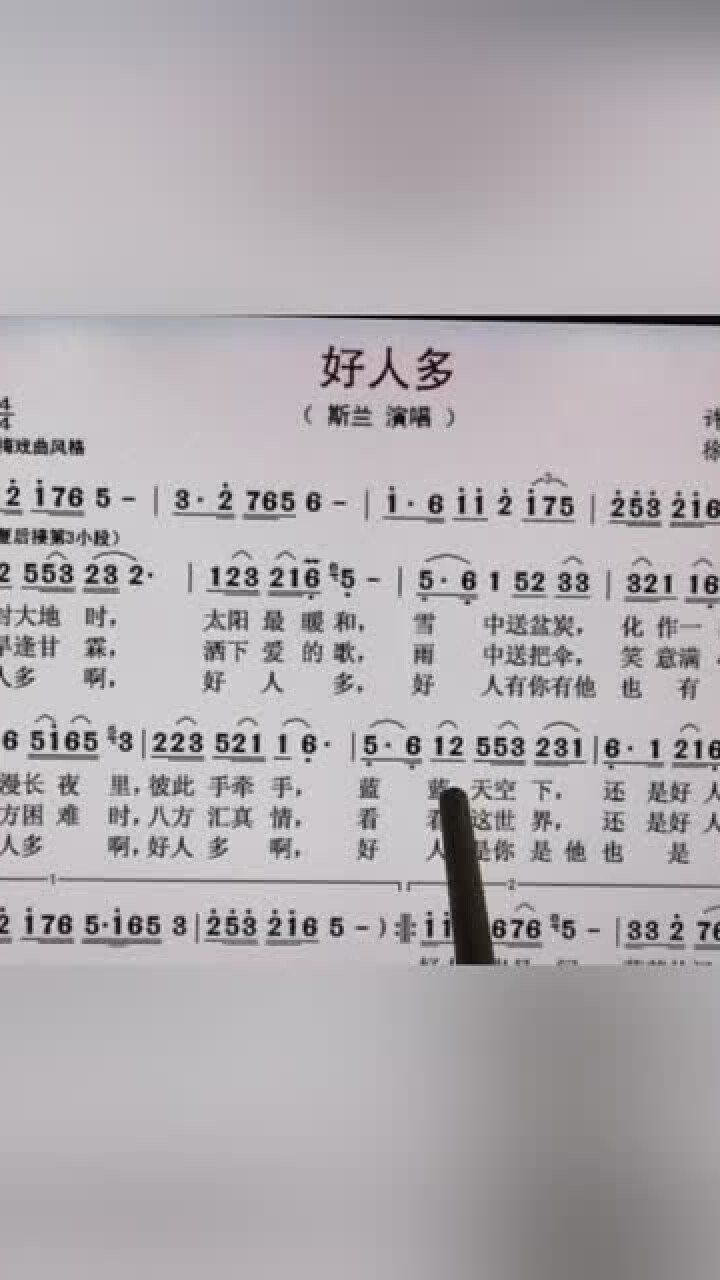 好人多
（ 斯兰 演唱 ）
4
4
戏曲风格
徐
2 1765 - | 3· 2 765 6 - | 1· 6 11 2 175 | 253 216
复后接第3小段）
2 553 23 2· | 123 216 5 - | 5· 6 1 52 33 | 321 16
大地 时， 太阳 最 暖 和， 雪 中送盆炭， 化 作 一
逢甘 霖， 洒下 爱 的 歌， 雨 中送把伞， 笑 意满
人多 啊， 好 人 多， 好 人有你有他 也 有
6 5165 3 | 223 521 1 6· | 5· 6 12 553 231 | 6· 1 216
漫长 夜 里，彼此 手牵 手， 蓝 天空 下， 还 是好人
方困 难 时，八方 汇真 情， 看 这世 界， 还 是好人
人多 啊，好人 多 啊， 好 人 是你 是 他 也 是
1 2
2 176 5·165 3 | 253 216 5 - ) :‖: 676 5 - | 33 2 76